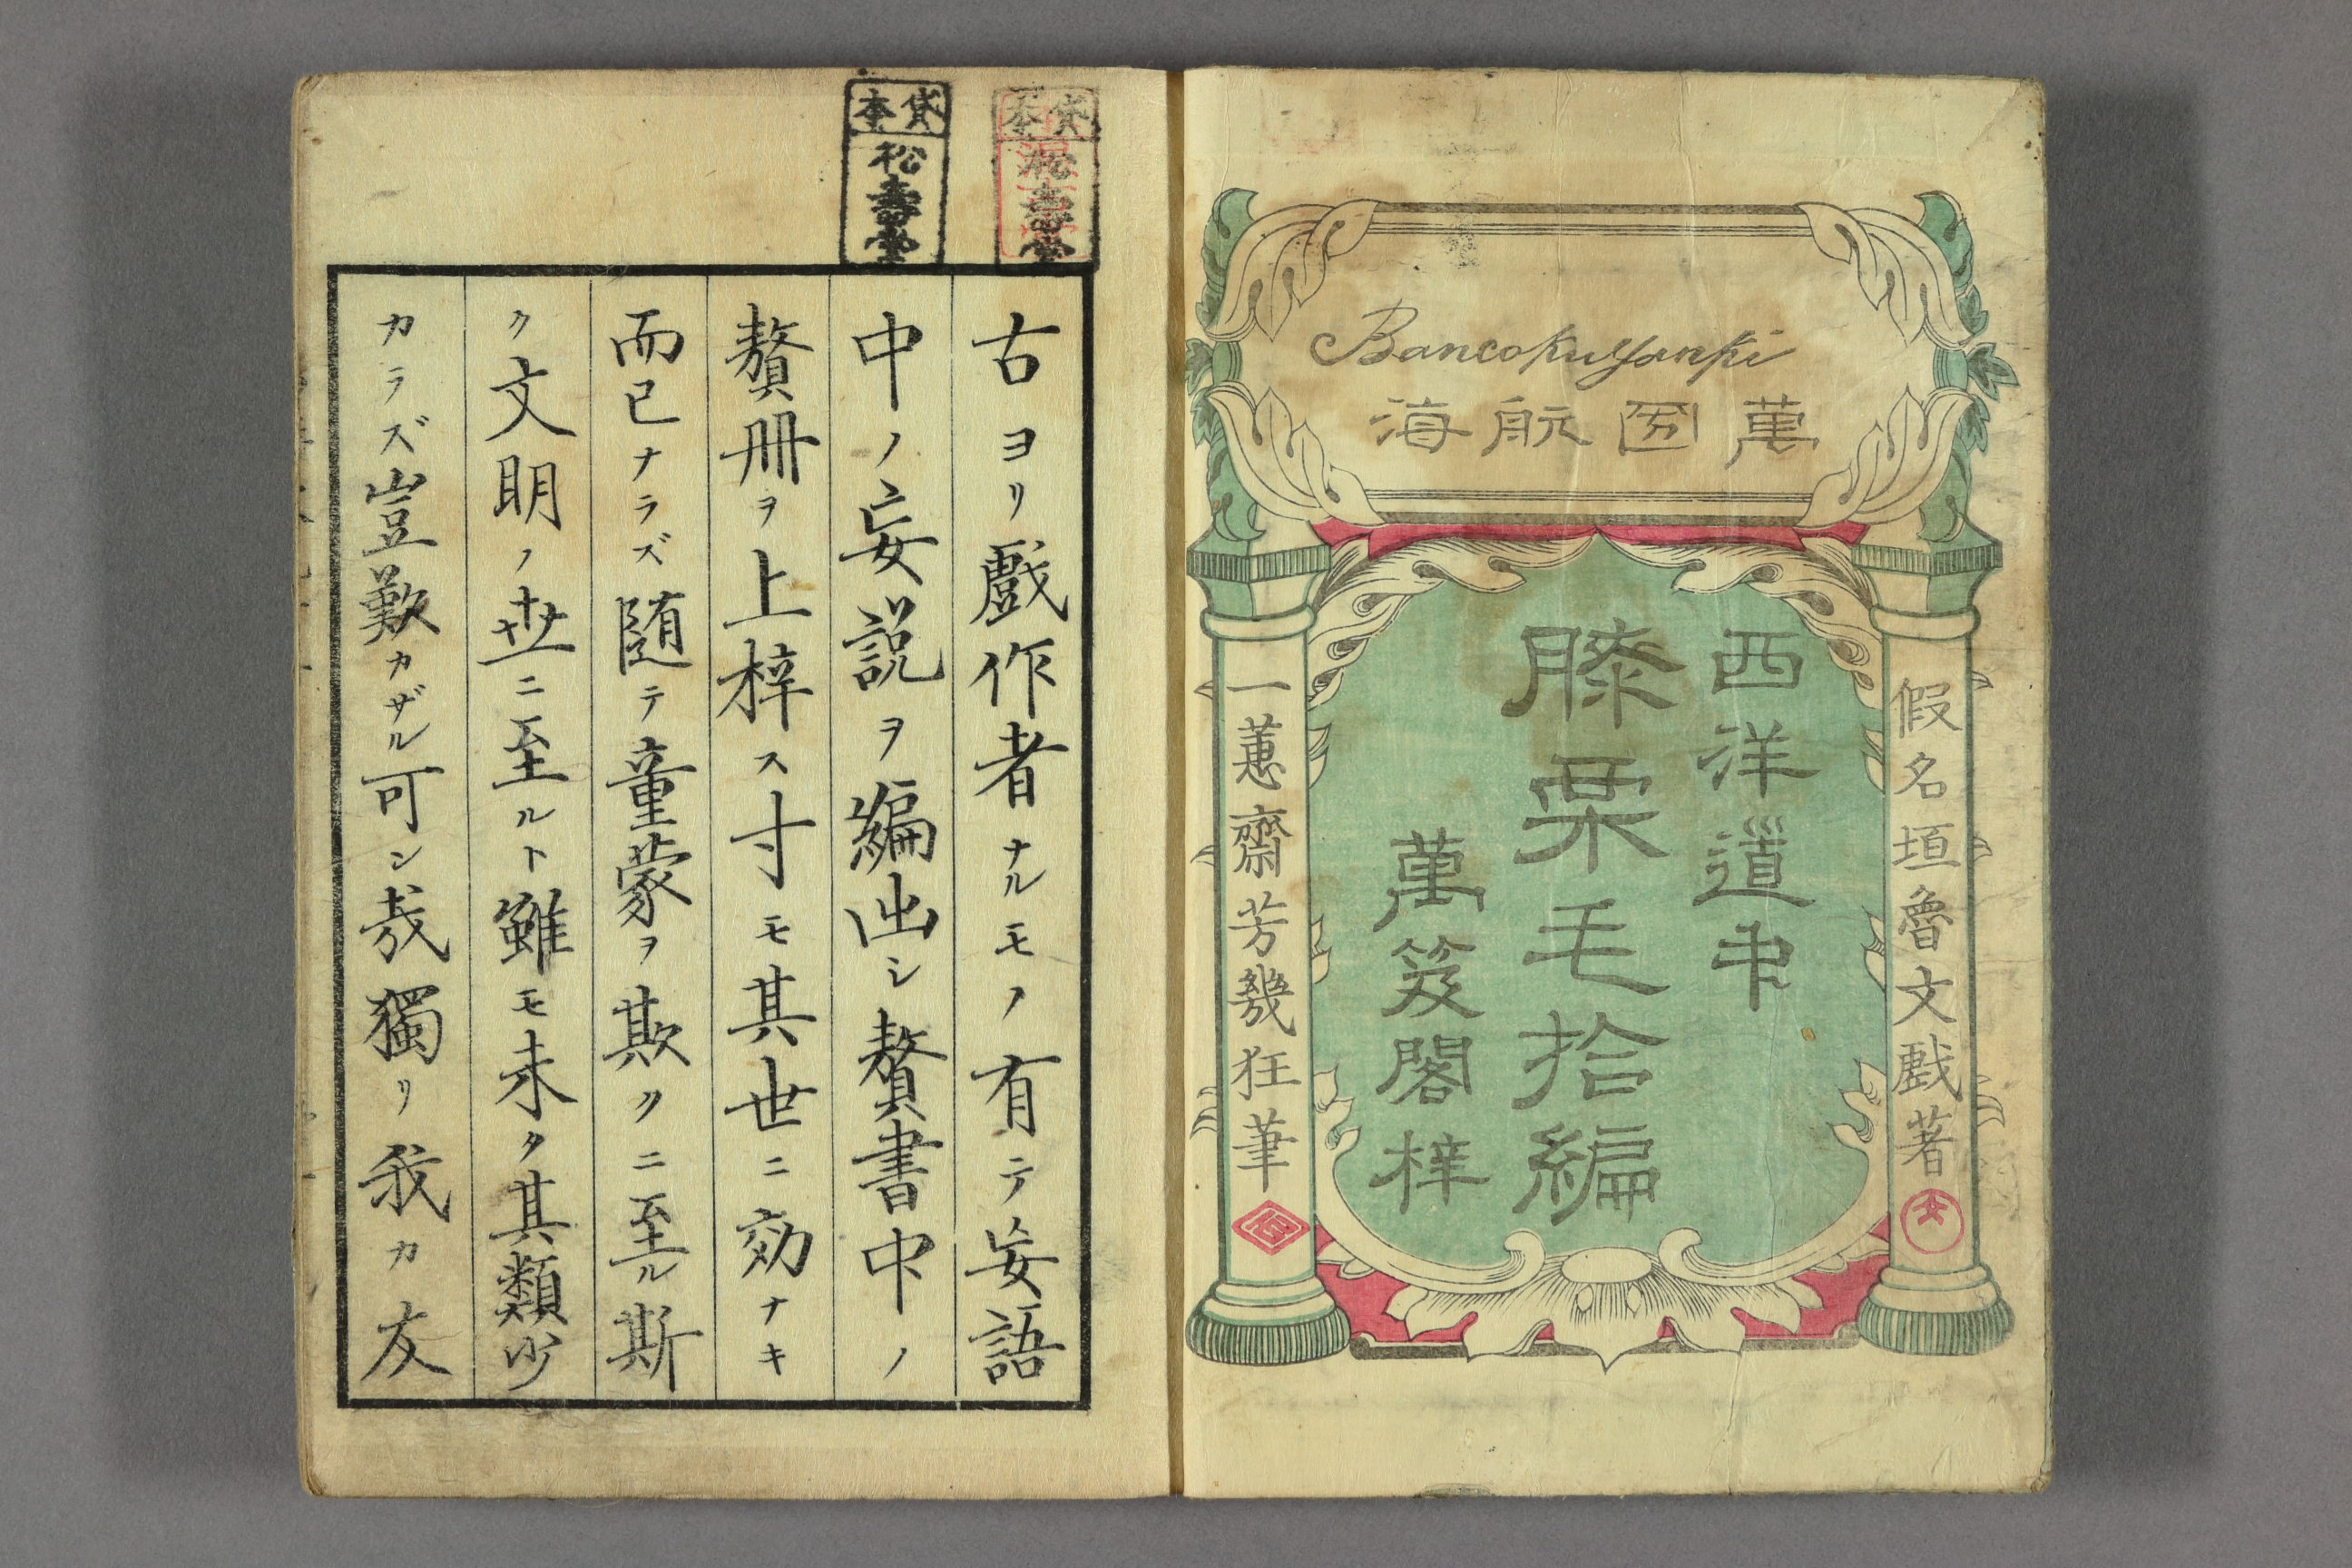 Bancokuyanki
萬國航海
假名垣魯文戯著
西洋道中
膝栗毛拾編
萬笈閣梓
一蕙齋芳幾狂筆
貸本
松壽堂
貸本
松壽堂
古ヨリ戯作者ナルモノ有テ妄語
中ノ妄説ヲ編出シ贅書中ノ
贅冊ヲ上梓ス寸モ其世ニ効ナキ
而已ナラズ随テ童蒙ヲ欺クニ至ル斯
ク文明ノ世ニ至ルト雖モ未タ其類少
カラズ豈歎カザル可ン哉獨リ我カ友